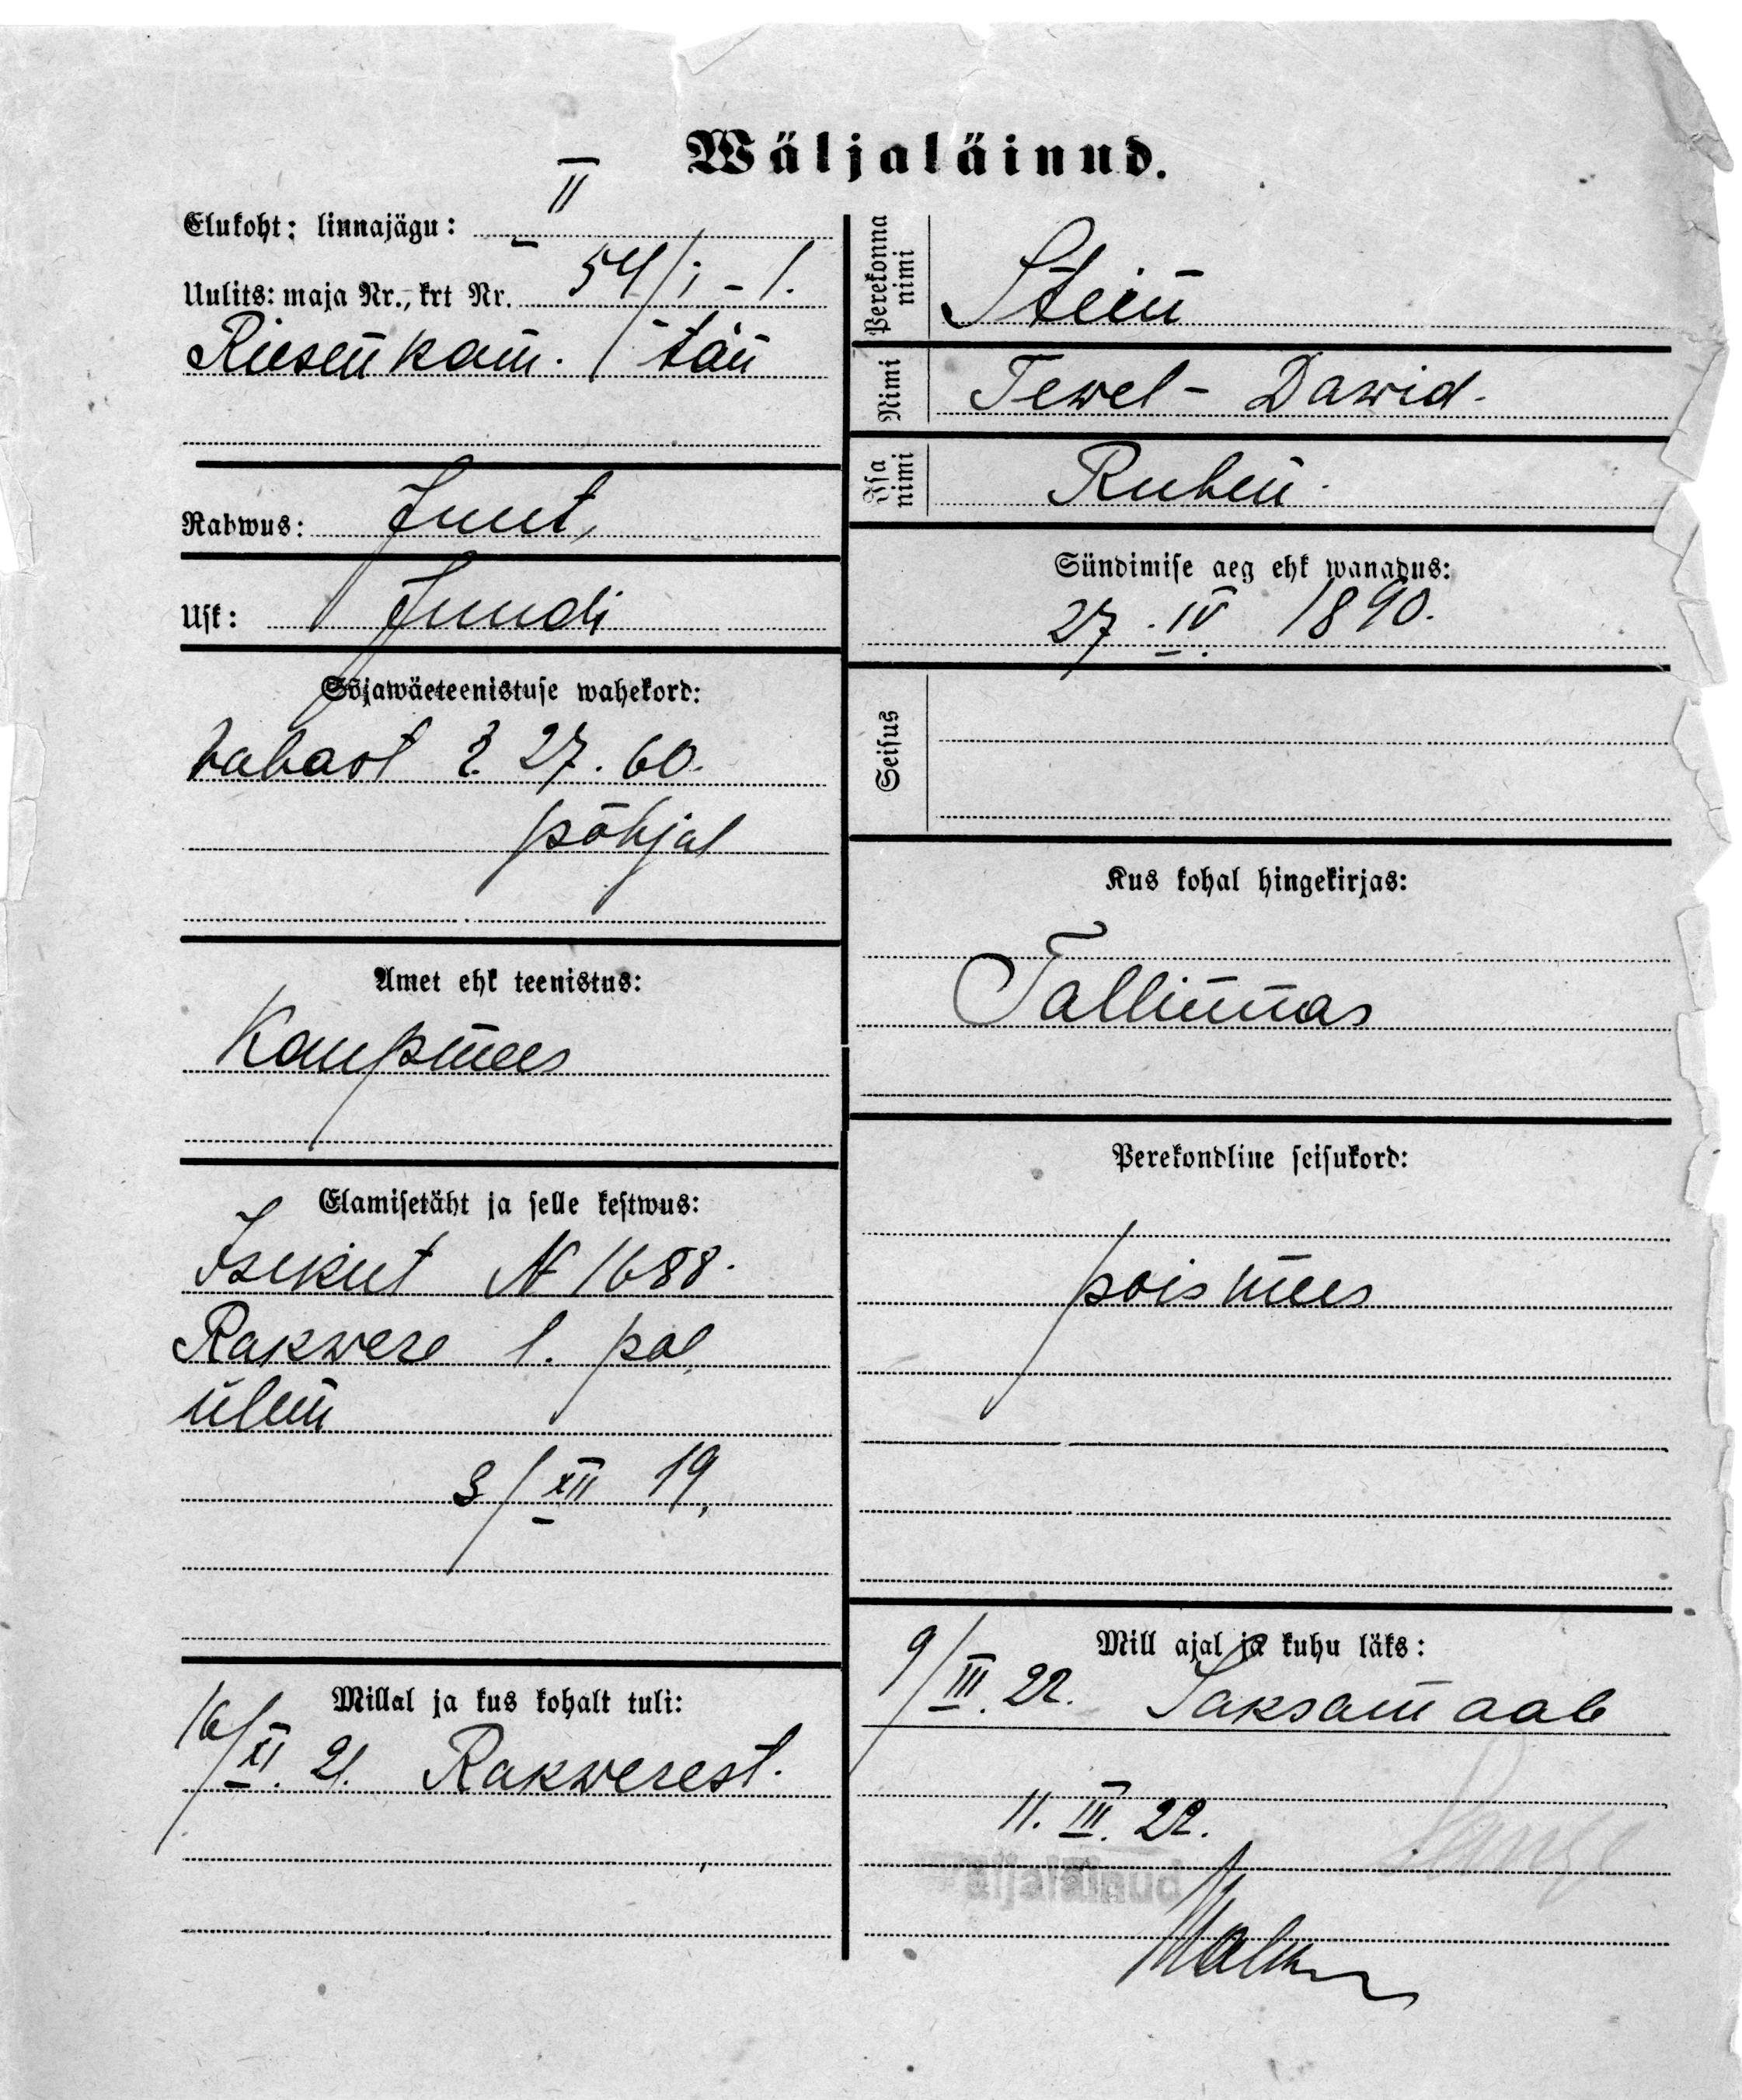 Wäljaläinud.
Elukoht: linnajägu: II
Uulits: maja Nr., krt Nr. 54/1-1.
Riesenkam. tän
Rahwus: Juut,
Usk: Juudi
Sõjawäeteenistuse wahekord:
vabast § 27. 60.
põhjal
Amet ehk teenistus:
Kaupmees
Elamisetäht ja selle kestwus:
Isikut N 1688.
Rakwere l. pol
ülem
3/XII 19.
Millal ja kus kohalt tuli:
16/XI. 21. Rakwerest.
Perekonna nimi Stein
Nimi Tewel-Dawid.
Isa nimi Ruben.
Sündimise aeg ehk wanadus:
27. IV. 1890.
Seisus
Kus kohal hingekirjas:
Tallinnas
Perekondline seisukord:
poismees
Mill ajal ja kuhu läks:
9/III. 22. Saksamaale
11. III. 22.
Wäljaläinud